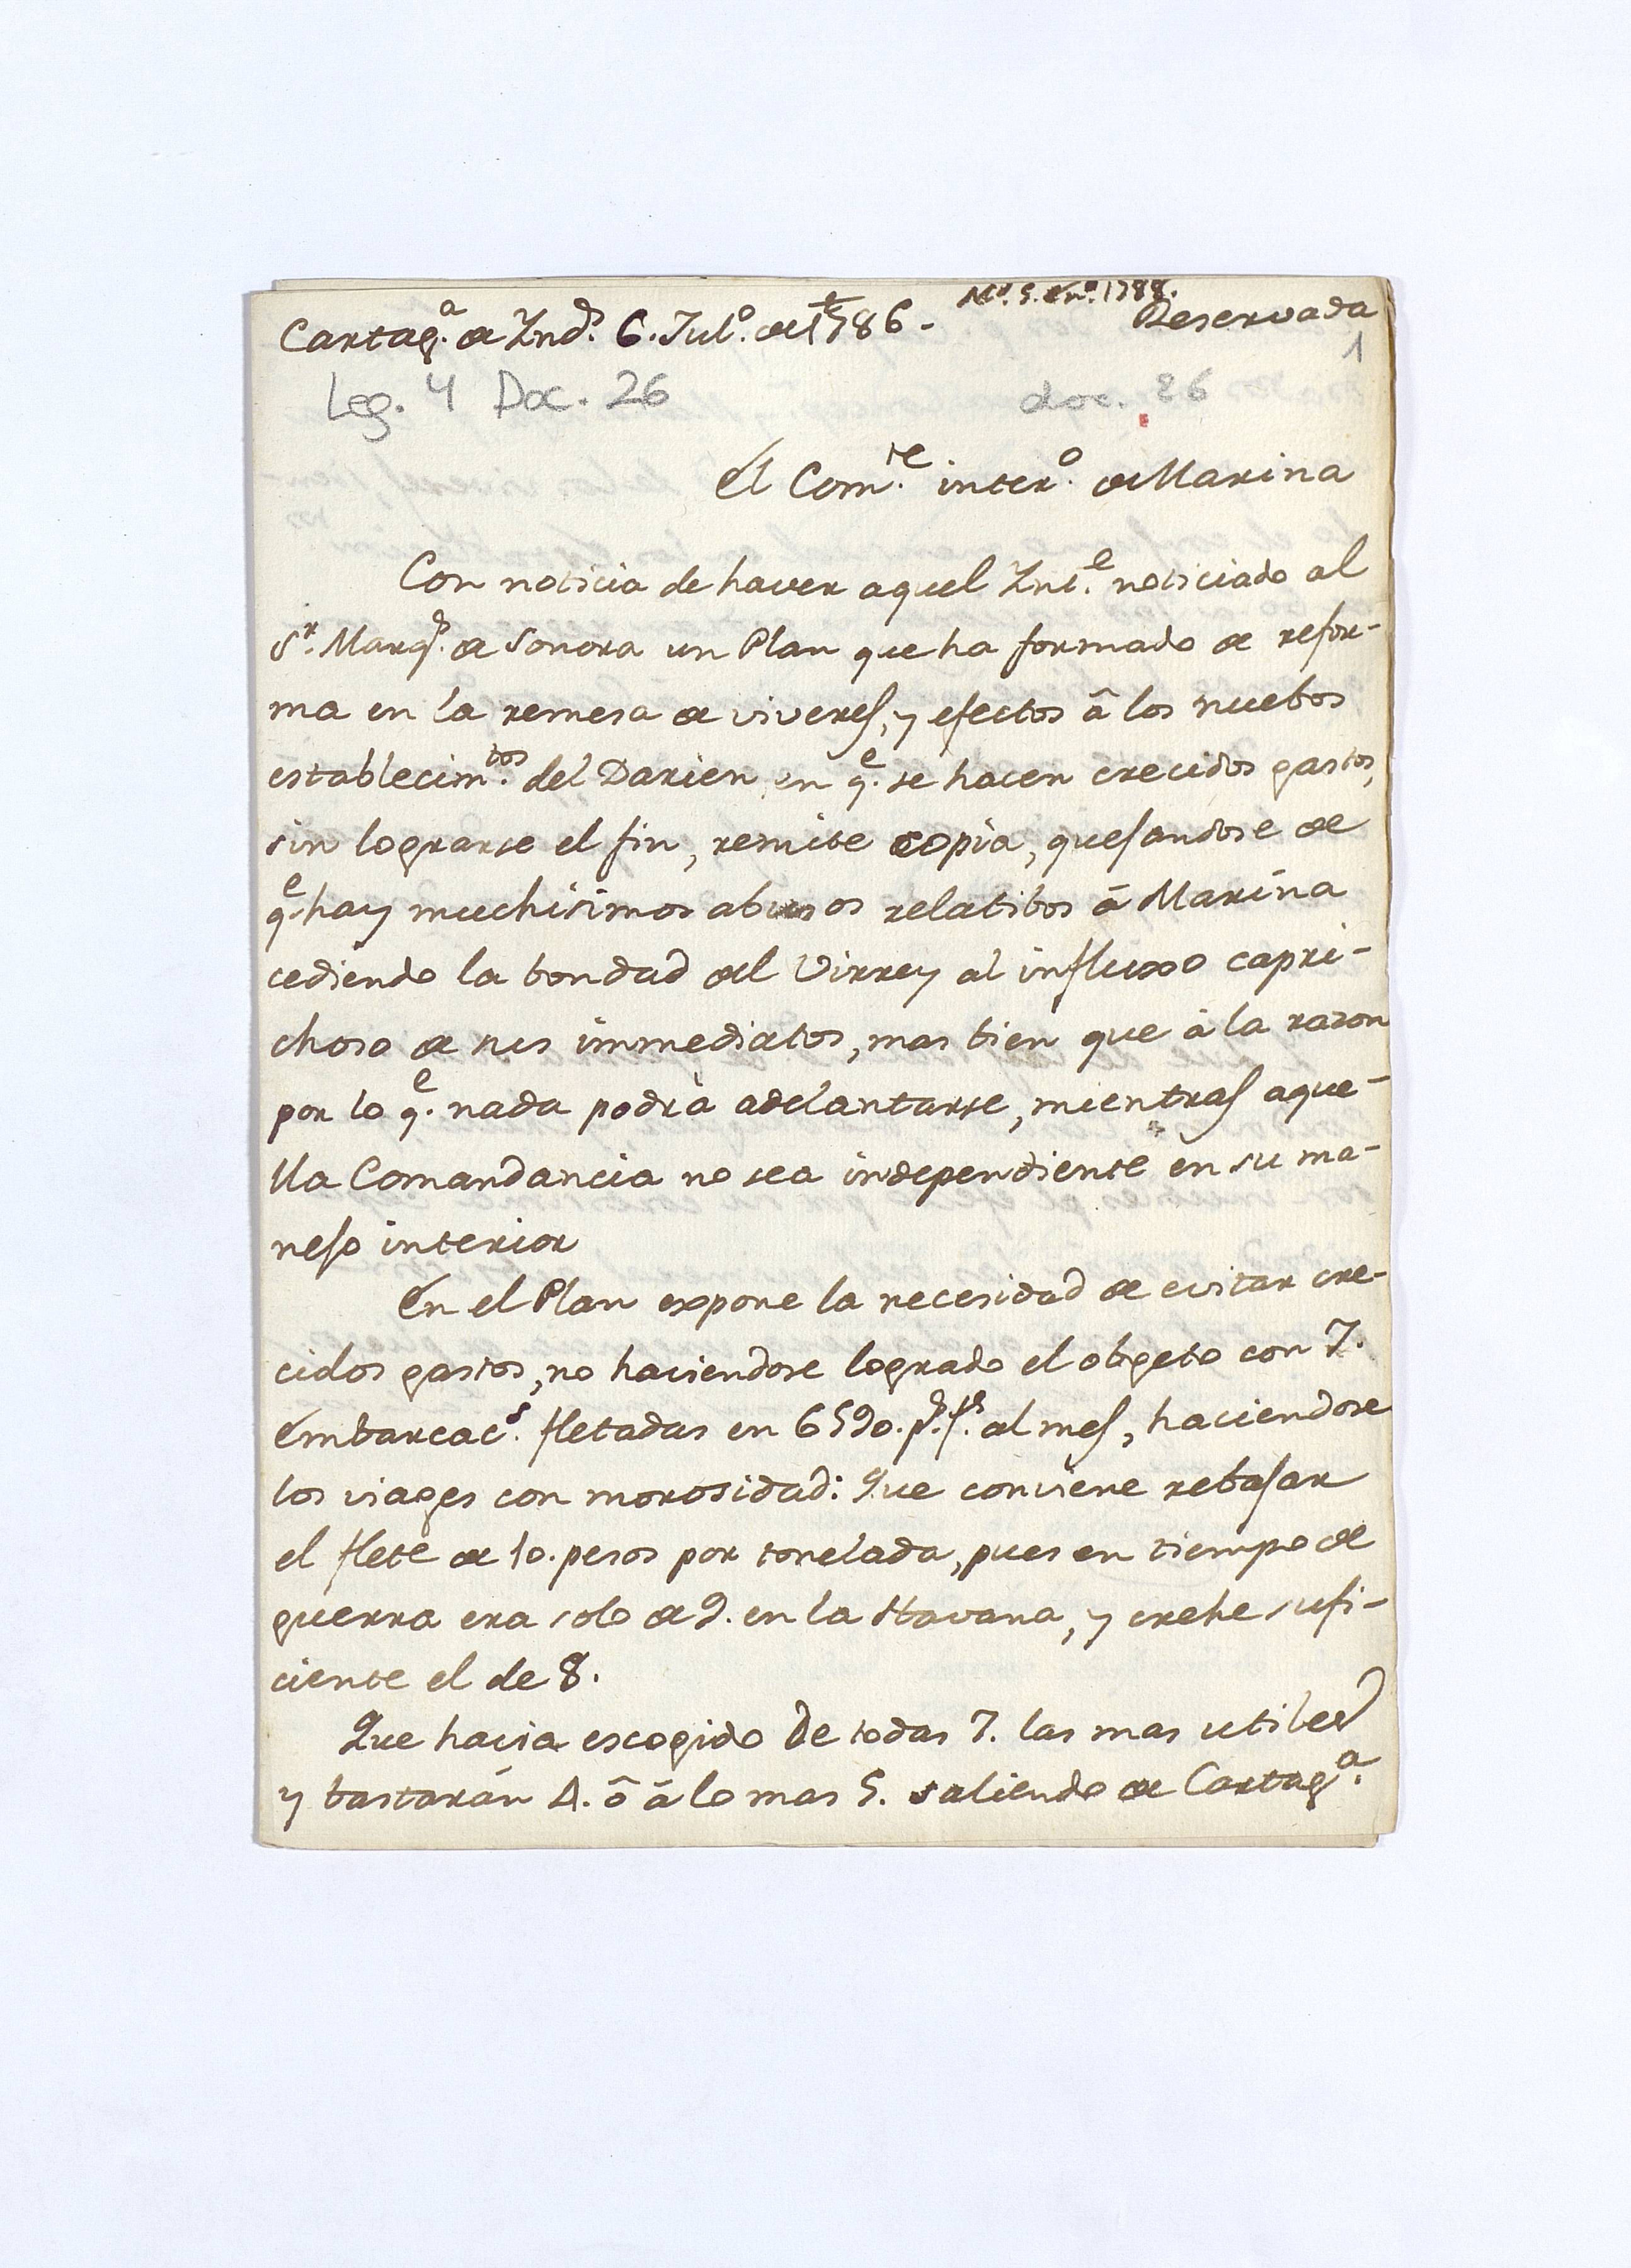 Nº. 5. En.º 1788.
Cartag.ª de Ind.s 6. Jul.º de 1786 - Reservada
1
Leg. 4 Doc. 26 doc. 26
El Com.te inter.º de Marina
Con noticia de haver aquel Int.e noticiado al
S.r Marq.s de Sonora un Plan que ha formado de refor-
ma en la remesa de viveres, y efectos â los nuebos
establecim.tos del Darien en q.e se hacen crecidos gastos,
sin lograrse el fin, remite copia, quejandose de
q.e hay muchisimos abusos relatibos á Marina
cediendo la bondad del Virrey al influxo capri-
choso de sus immediatos, mas bien que à la razon
por lo q.e nada podrà adelantarse, mientras aque-
lla Comandancia no sea independiente en su ma-
nejo interior
En el Plan expone la necesidad de evitar cre-
cidos gastos, no haviendose logrado el obgeto con 7.
Embarcac.s fletadas en 6590. p.s f.s al mes, haciendose
los viages con morosidad: Que conviene rebajar
el flete de 10. pesos por tonelada, pues en tiempo de
guerra era solo de 9. en la Havana, y crehe sufi-
ciente el de 8.
Que havia escogido de todas 7. las mas utiles
y bastarán 4. ô á lo mas 5. saliendo de Cartag.ª